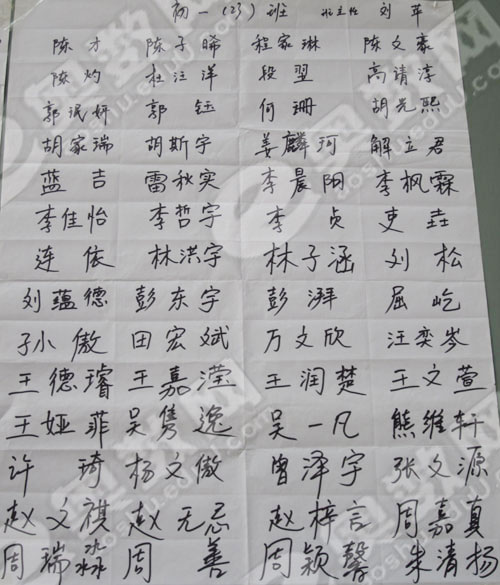 初一(23)班 班主任 刘苹
陈才 陈子晞 程家琳 陈文豪
陈灼 杜注洋 段翌 高清淳
郭珉妍 郭钰 何珊 胡先熙
胡家瑞 胡斯宇 姜麟珂 解立君
蓝吉 雷秋实 李晨阳 李枫霖
李佳怡 李哲宇 李贞 吏垚
连依 林洪宇 林子涵 刘松
刘蕴德 彭东宇 彭湃 屈屹
孙小傲 田宏斌 万文欣 汪奕岑
王德璿 王嘉滢 王润楚 王文萱
王娅菲 吴隽逸 吴一凡 熊维轩
许琦 杨文傲 曾泽宇 张文源
赵文祺 赵无忌 赵梓言 周嘉真
周瑞淼 周善 周颖馨 朱清扬